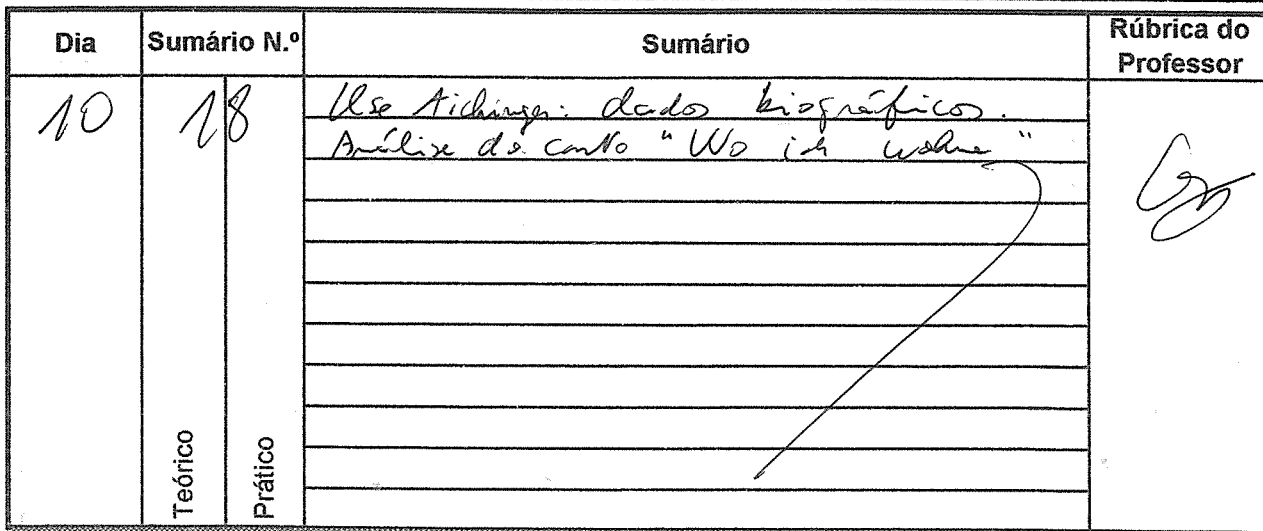 Dia Sumário N.º Sumário Rúbrica do Professor
10 18 Ilse Aichinger: dados biográficos.
Análise do conto "Wo ich wohne"
Teórico Prático